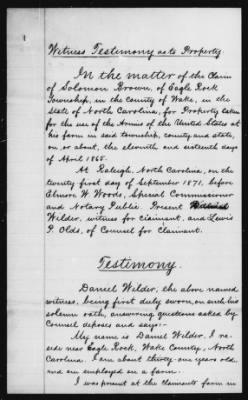 Witness Testimony as to Property
In the matter of the Claim
of Solomon Brown, of Eagle Rock
Township, in the County of Wake, in the
State of North Carolina, for Property taken
for the use of the Armies of the United States at
his farm in said township, county and state,
on or about, the eleventh and sixteenth days
of April 1865.
At Raleigh, North Carolina, on the
twenty first day of September 1871, before
Elmore W. Woods, Special Commissioner
and Notary Public. Present
Wilder, witness for claimant, and Lewis
P. Olds, of Counsel for Claimant.
Testimony.
Daniel Wilder, the above named
witness, being first duly sworn, on and his
solemn oath, answering questions asked by
Counsel deposes and says:-
My name is Daniel Wilder. I re-
side near Eagle Rock, Wake County, North
Carolina. I am about thirty-one years old
and am employed on a farm.
I was present at the claimants farm in